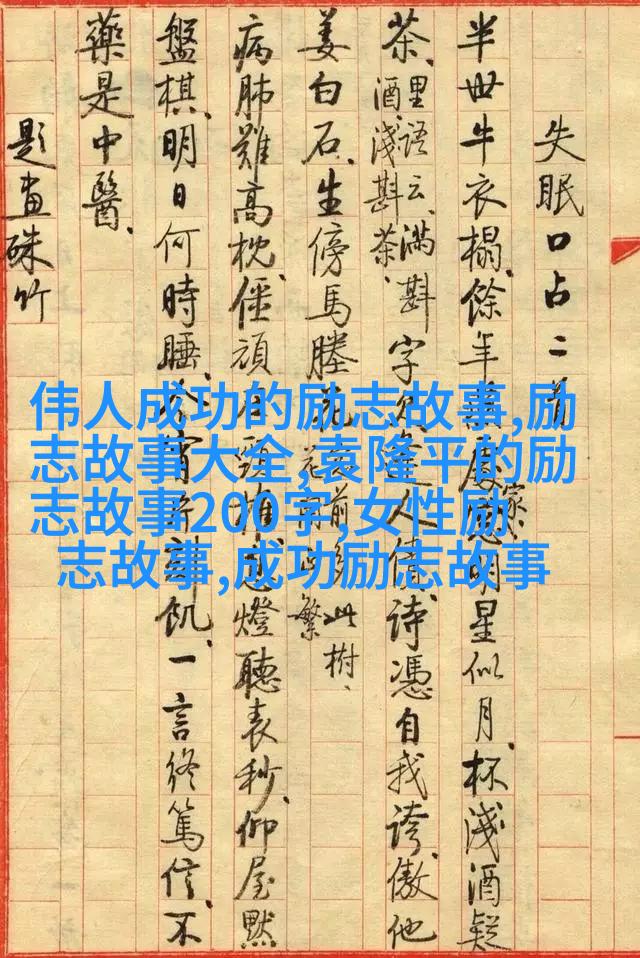 失眠口占二首
半世牛衣榻、餘年 明星似月、杯淺酒疑
茶、里語云、滿斟酒、淺斟茶、字 人債、詩憑自我誇、傲他
姜白石、生傍馬塍 此樹、繁
病肺難高枕、僵頑 燈聽表秒、仰屋默
盤棋、明日何時睡、 飢、一言終篤信、不
藥是中醫、
題畫硃竹
伟人成功的励志故事,励
志故事大全,袁隆平的励
志故事200字,女性励
志故事,成功励志故事